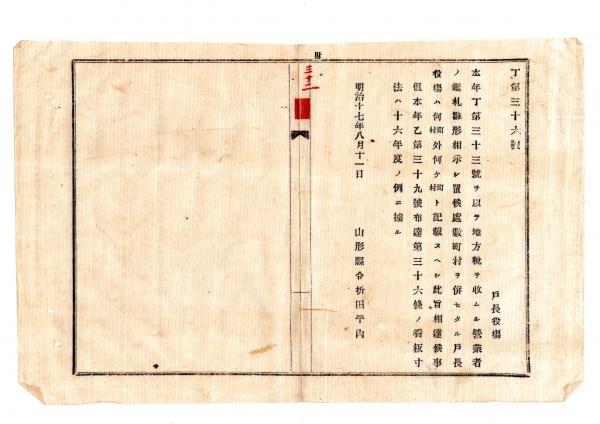 丁第三十六號
戸長役場
本年丁第三十三號ヲ以テ地方稅ヲ收ムル營業者
ノ鑑札雛形相示シ置候處數町村ヲ併セタル戸長
役場ハ何町村外何ケ町村ト記載スヘシ此旨相達候事
但本年乙第三十九號布達第三十六條ノ看板寸
法ハ十六年度ノ例ニ據ル
明治十七年八月十一日
山形縣令折田平內
財
三十二